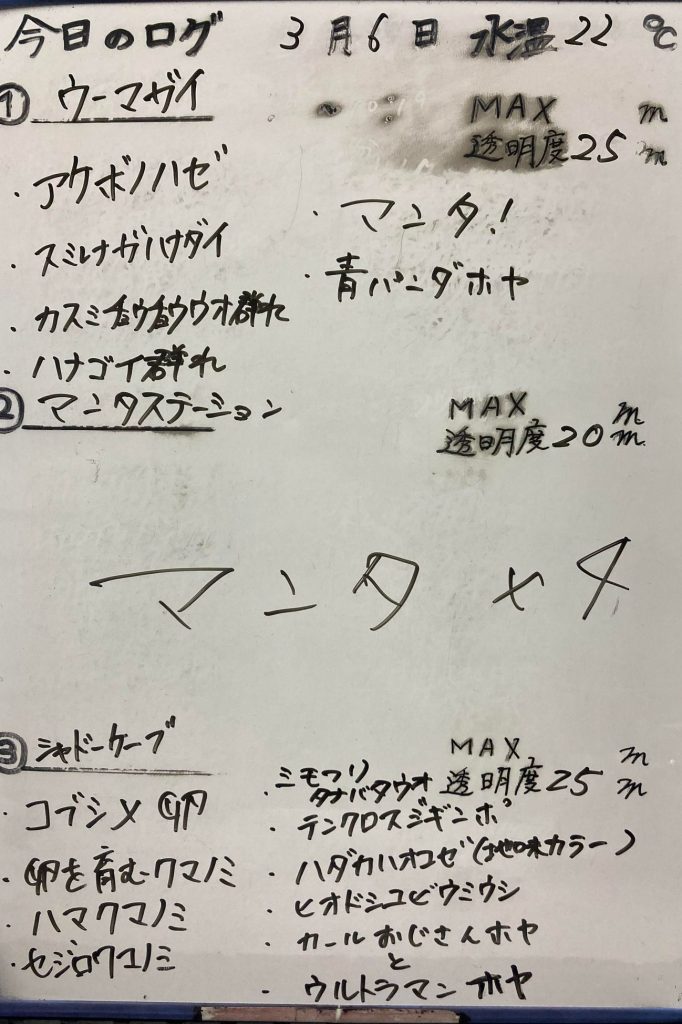 今日のログ 3月6日 水温22℃
① ウーマガイ
MAX m
透明度25m
・アケボノハゼ
・スミレナガハナダイ
・カスミチョウチョウウオ群れ
・ハナゴイ群れ
・マンタ!
・青パンダホヤ
② マンタステーション
MAX m
透明度20m
マンタ×4
③ シャドーケーブ
MAX m
透明度25m
・コブシメ 卵
・卵を育むクマノミ
・ハマクマノミ
・セジロクマノミ
・ミモフリ
タナバタウオ
・テンクロスジギンポ
・ハダカハオコゼ(地味カラー)
・ヒオドシユビウミウシ
・カールおじさんホヤ
と
・ウルトラマンホヤ